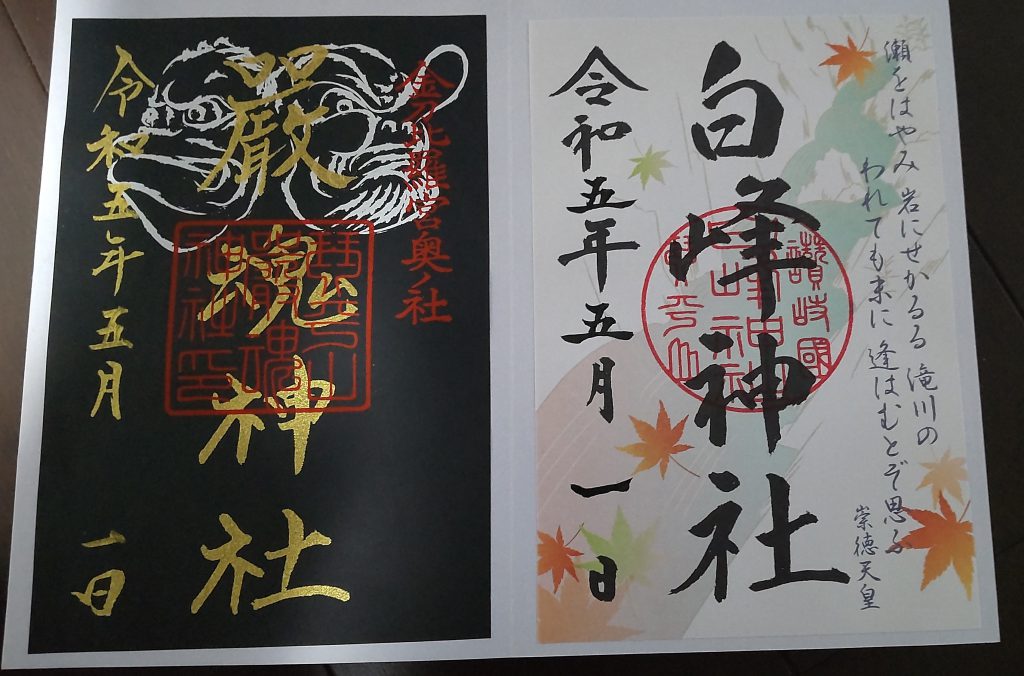 瀬をはやみ 岩にせかるる 滝川の
われても末に 逢はむとぞ思ふ
崇徳天皇
白峰神社
讃岐國
令和五年五月一日
金刀比羅宮奥ノ社
嚴魂神社
令和五年五月一日